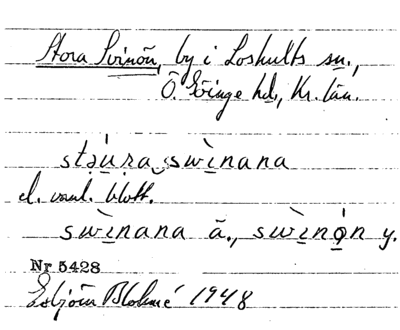 Stora Svinön, by i Loshults sn.,
Ö. Göinge hd, Kr. län.
stəu̇ra swìnana
el. vanl. blott.
swìnana ä., swìnǫ́n y.
Nr 5428
1948